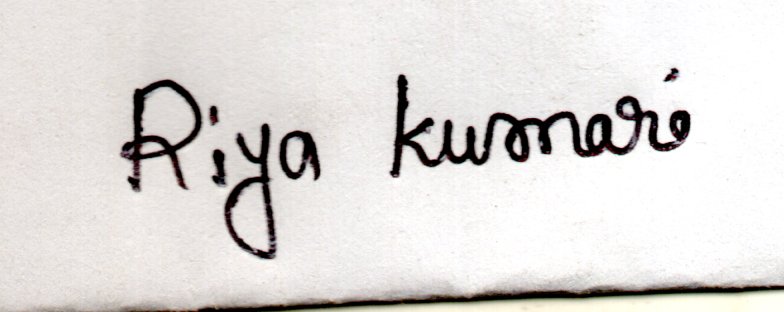 Riya kumari